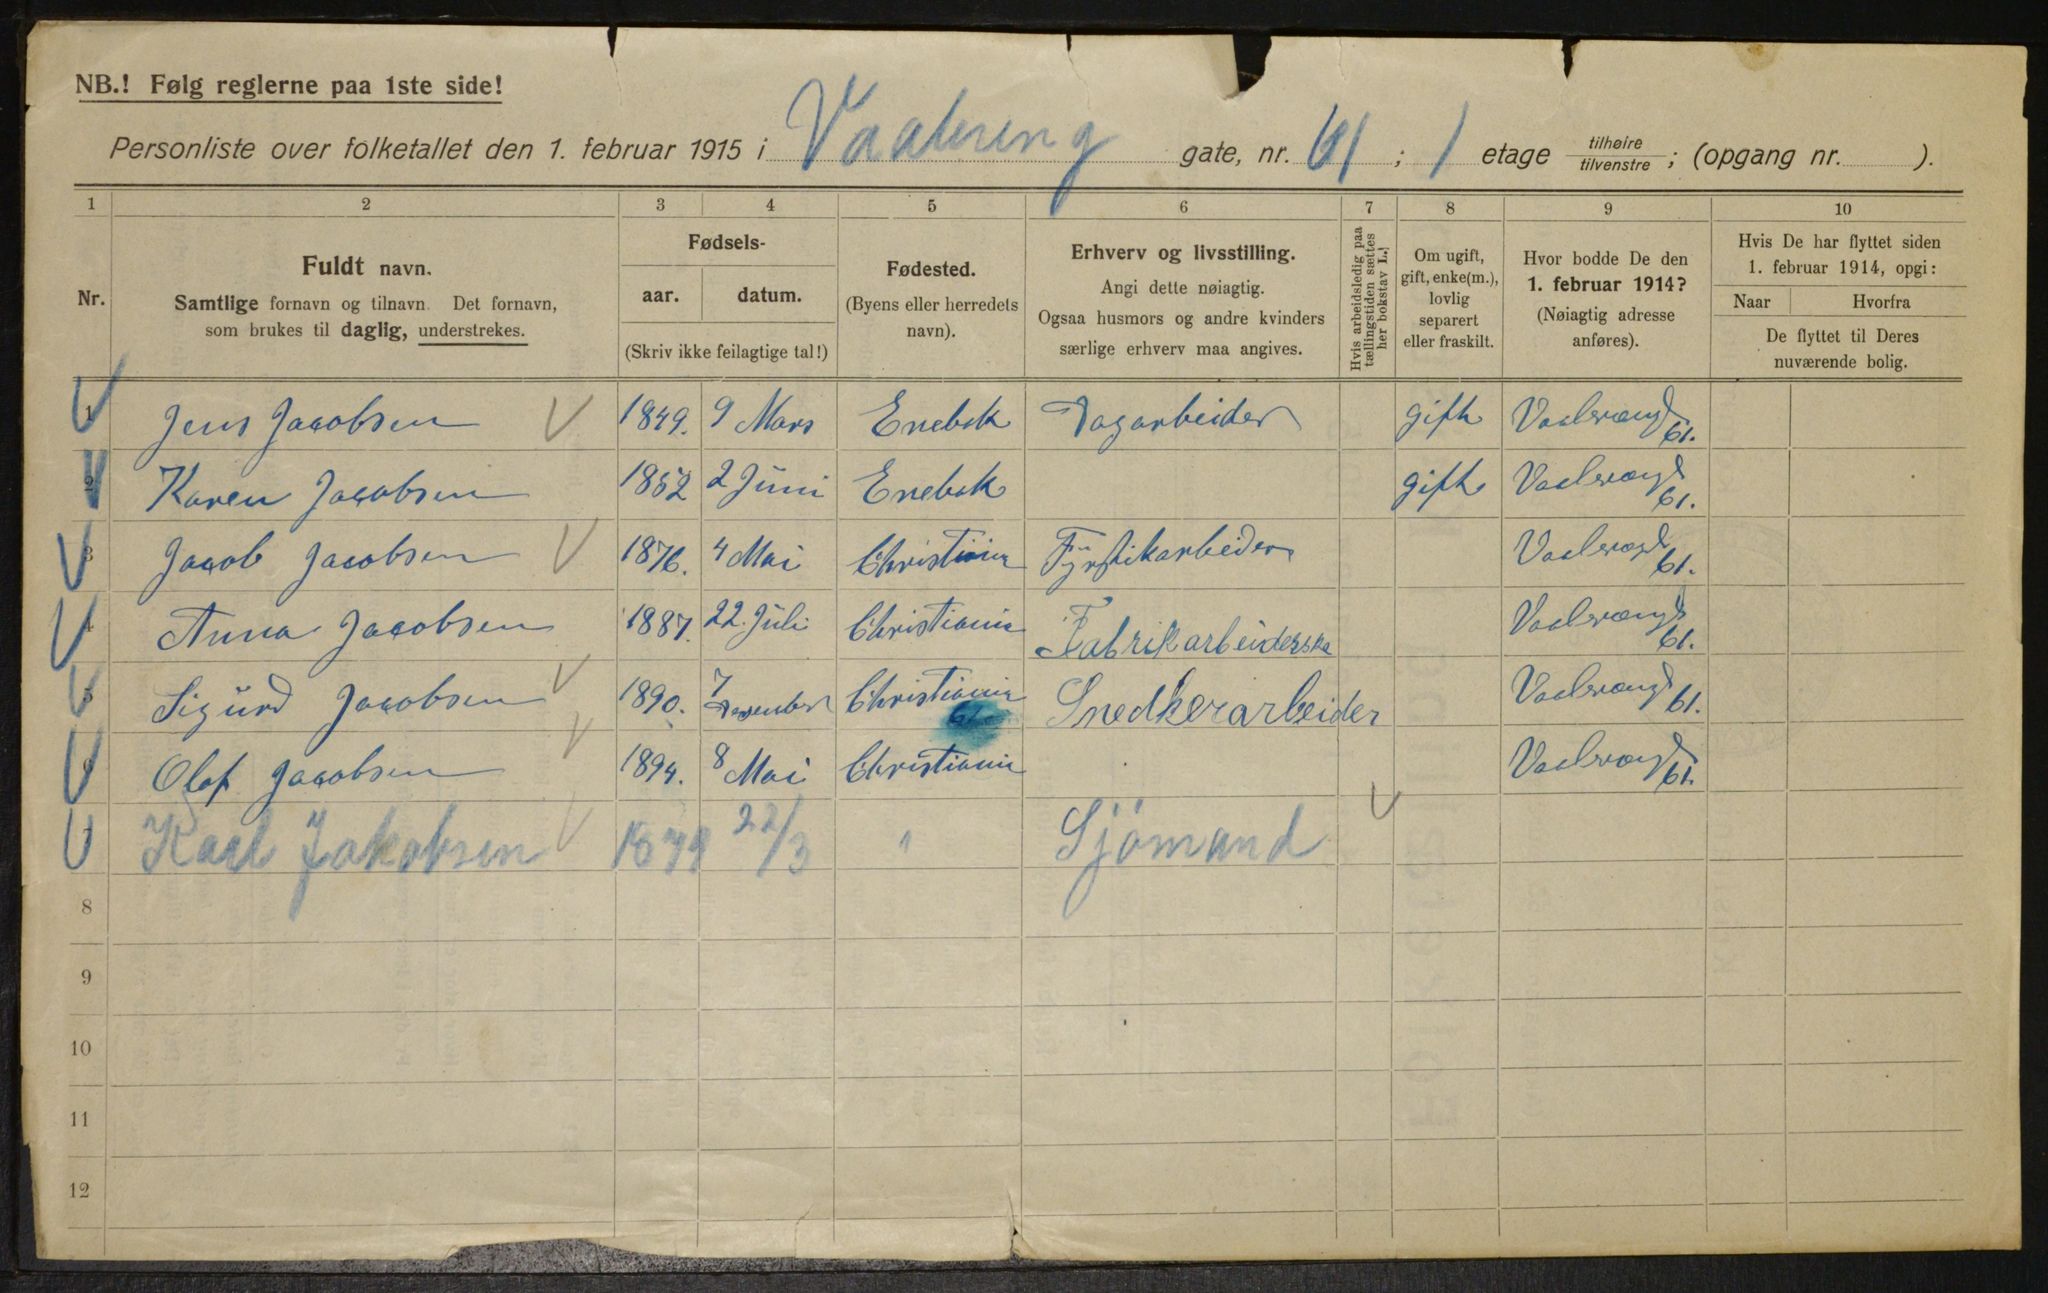 NB.! Følg reglerne paa 1ste side!
Personliste over folketallet den 1. februar 1915 i Vaalereng gate, nr. 61 ; 1 etage tilhøire / tilvenstre ; (opgang nr. ).
1 2 3 4 5 6 7 8 9 10
Nr.
Fuldt navn.
Samtlige fornavn og tilnavn. Det fornavn,
som brukes til daglig, understrekes.
Fødsels-
aar. datum.
(Skriv ikke feilagtige tal!)
Fødested.
(Byens eller herredets
navn).
Erhverv og livsstilling.
Angi dette nøiagtig.
Ogsaa husmors og andre kvinders
særlige erhverv maa angives.
Hvis arbeidsledig paa
tællingstiden sættes
her bokstav L.!
Om ugift,
gift, enke(m.),
lovlig
separert
eller fraskilt.
Hvor bodde De den
1. februar 1914?
(Nøiagtig adresse
anføres).
Hvis De har flyttet siden
1. februar 1914, opgi:
Naar Hvorfra
De flyttet til Deres
nuværende bolig.
1 Jens Jacobsen 1849. 9 Mars Enebak Dagarbeider gift Vaalerengt 61.
2 Karen Jacobsen 1852 2 Juni Enebak gift Vaalerengt 61.
3 Jacob Jacobsen 1876. 4 Mai Christiania Fyrstikarbeider Vaalerengt 61.
4 Anna Jacobsen 1887. 22. Juli Christiania Fabrikarbeiderske Vaalerengt 61.
5 Sigurd Jacobsen 1890. 7 Desember Christiania Snedkerarbeider Vaalerengt 61.
6 Olaf Jacobsen 1894. 8 Mai Christiania Vaalerengt 61.
7 Karl Jakobsen 1879 22/3 " Sjömand
8
9
10
11
12